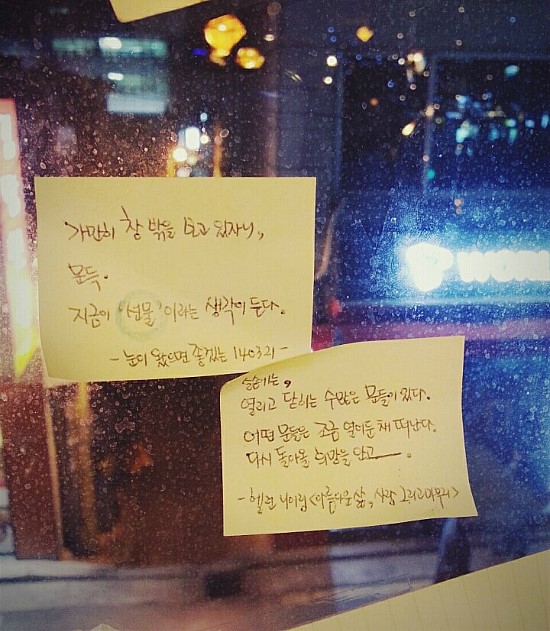 가만히 창 밖을 보고 있자니,
문득.
지금이 '선물' 이라는 생각이 든다.
- 눈이 왔으면 좋겠는 140321 -
삶에는,
열리고 닫히는 수많은 문들이 있다.
어떤 문들은 조금 열어둔 채 떠난다.
다시 돌아올 희망을 안고ㅡ.
- 헬렌 니어링 <아름다운 삶, 사랑 그리고 마무리>